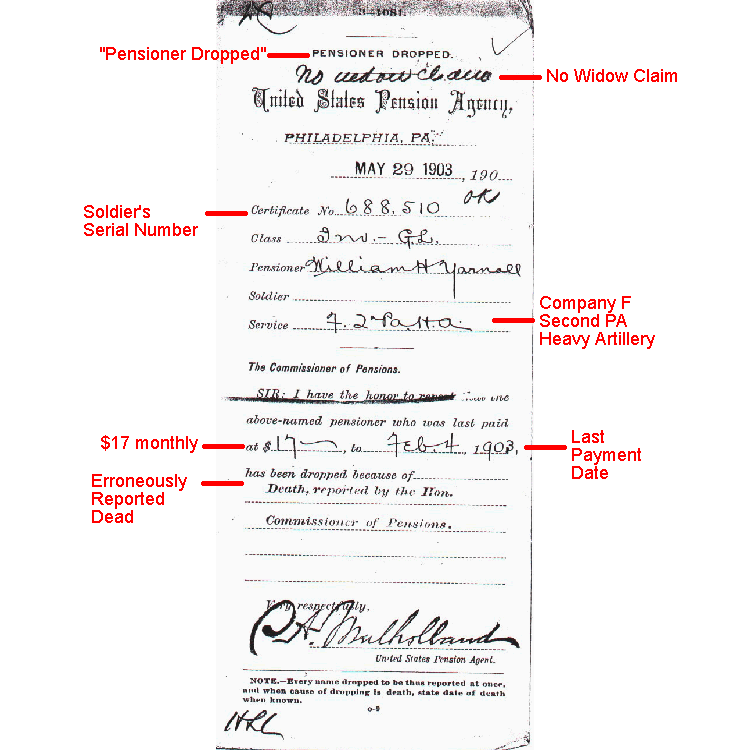 3-1081.
"Pensioner Dropped"
PENSIONER DROPPED.
No widow claim
No Widow Claim
United States Pension Agency,
PHILADELPHIA, PA.
MAY 29 1903, 190
OK
Soldier's
Serial Number
Certificate No. 688,510
Class Inv.- G.L.
Pensioner William H Yarnall
Soldier
Service F. 2" Pa. H.a.
Company F
Second PA
Heavy Artillery
The Commissioner of Pensions.
SIR: I have the honor to report that the
above-named pensioner who was last paid
$17 monthly
at $17, to Feb. 4, 1903,
Last
Payment
Date
Erroneously
Reported
Dead
has been dropped because of
Death, reported by the Hon.
Commissioner of Pensions.
Very respectfully,
St. A. Mulholland
United States Pension Agent.
NOTE.—Every name dropped to be thus reported at once,
and when cause of dropping is death, state date of death
when known.
6-9